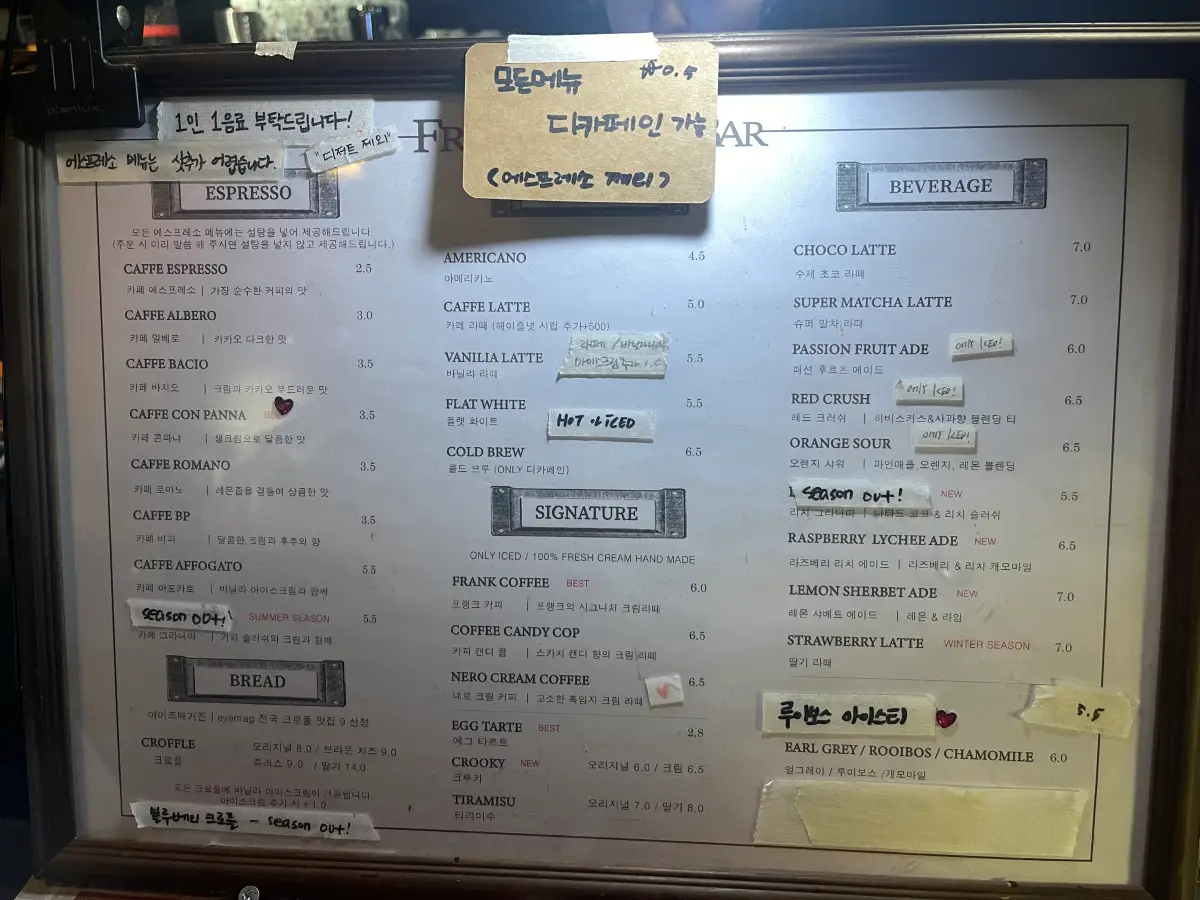 plenlux
모든메뉴 ₩0.5
디카페인 가능
(에스프레소 제외)
1인 1음료 부탁드립니다!
"디저트 제외"
에스프레소 메뉴는 샷추가 어렵습니다.
FR BAR
ESPRESSO
모든 에스프레소 메뉴에는 설탕을 넣어 제공해드립니다.
(주문 시 미리 말씀 해 주시면 설탕을 넣지 않고 제공해드립니다.)
CAFFE ESPRESSO 2.5
카페 에스프레소 | 가장 순수한 커피의 맛
CAFFE ALBERO 3.0
카페 알베로 | 카카오 다크한 맛
CAFFE BACIO 3.5
카페 바치오 | 크림과 카카오 부드러운 맛
CAFFE CON PANNA 3.5
카페 콘파냐 | 생크림으로 달콤한 맛
CAFFE ROMANO 3.5
카페 로마노 | 레몬즙을 곁들여 상큼한 맛
CAFFE BP 3.5
카페 비피 | 달콤한 크림과 후추의 향
CAFFE AFFOGATO 5.5
카페 아포카토 | 바닐라 아이스크림과 함께
season out! SUMMER SEASON 5.5
카페 그라니따 | 커피 슬러쉬와 크림과 함께
BREAD
아이즈매거진 | eyemag 전국 크로플 맛집 9 선정
CROFFLE 오리지널 8.0 / 브라운 치즈 9.0
크로플 츄러스 9.0 / 딸기 14.0
모든 크로플에 바닐라 아이스크림이 제공됩니다.
아이스크림 추가 시 + 1.0
블루베리 크로플 - season out!
AMERICANO 4.5
아메리카노
CAFFE LATTE 5.0
카페 라떼 (헤이즐넛 시럽 추가+500)
VANILIA LATTE 5.5
바닐라 라떼
아이스크림추가 1.0
FLAT WHITE 5.5
플랫 화이트
HOT & ICED
COLD BREW 6.5
콜드 브루 (ONLY 디카페인)
SIGNATURE
ONLY ICED / 100% FRESH CREAM HAND MADE
FRANK COFFEE BEST 6.0
프랭크 커피 | 프랭크의 시그니처 크림라떼
COFFEE CANDY COP 6.5
커피 캔디 콥 | 스카치 캔디 향의 크림 라떼
NERO CREAM COFFEE 6.5
네로 크림 커피 | 고소한 흑임자 크림 라떼
EGG TARTE BEST 2.8
에그 타르트
CROOKY NEW 오리지널 6.0 / 크림 6.5
크루키
TIRAMISU 오리지널 7.0 / 딸기 8.0
티라미수
BEVERAGE
CHOCO LATTE 7.0
수제 초코 라떼
SUPER MATCHA LATTE 7.0
슈퍼 말차 라떼
PASSION FRUIT ADE ONLY ICED! 6.0
패션 후르츠 에이드
RED CRUSH ONLY ICED! 6.5
레드 크러쉬 | 히비스커스&사과향 블렌딩 티
ORANGE SOUR ONLY ICED! 6.5
오렌지 샤워 | 파인애플,오렌지, 레몬 블렌딩
season out! NEW 5.5
리치 그라니따 | 나타드 코코 & 리치 슬러쉬
RASPBERRY LYCHEE ADE NEW 6.5
라즈베리 리치 에이드 | 라즈베리 & 리치 캐모마일
LEMON SHERBET ADE NEW 7.0
레몬 샤베트 에이드 | 레몬 & 라임
STRAWBERRY LATTE WINTER SEASON 7.0
딸기 라떼
루이보스 아이스티 5.5
EARL GREY / ROOIBOS / CHAMOMILE 6.0
얼그레이 / 루이보스 /캐모마일